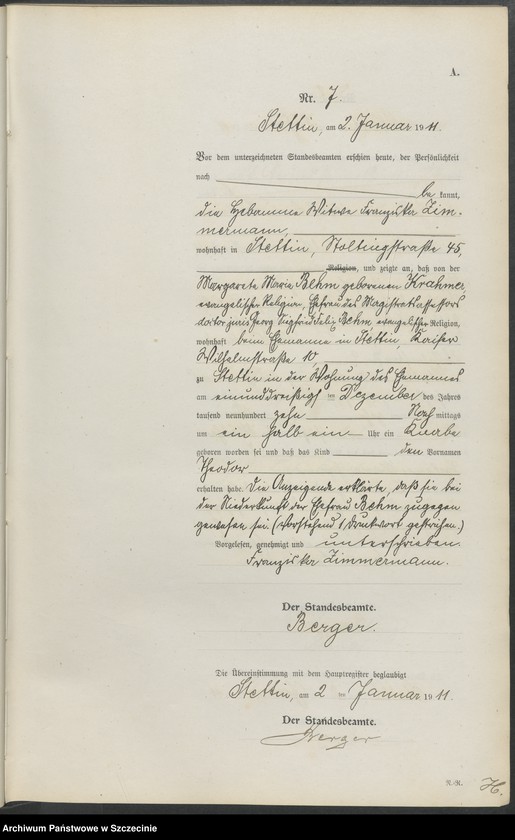 A.
Nr. 7.
Stettin, am 2. Januar 1911.
Vor dem unterzeichneten Standesbeamten erschien heute, der Persönlichkeit
nach be kannt,
die Hebamme Witwe Franziska Zim-
mermann,
wohnhaft in Stettin, Stoltingstraße 45,
Religion, und zeigte an, daß von der
Margarete Maria Behm geborenen Krahmer,
evangelischer Religion, Ehefrau des Magistratsassessors
doctor juris Georg Siegfried Felix Behm, evangelischer Religion,
wohnhaft beim Ehemanne in Stettin, Kaiser
Wilhelmstraße 10
zu Stettin in der Wohnung des Ehemannes
am einunddreißigsten Dezember des Jahres
tausend neunhundert zehn Nach mittags
um ein halb ein Uhr ein Knabe
geboren worden sei und daß das Kind den Vornamen
Theodor
erhalten habe. Die Anzeigende erklärte, daß sie bei
der Niederkunft der Ehefrau Behm zugegen
gewesen sei. (Vorstehend 1 Druckwort gestrichen.)
Vorgelesen, genehmigt und unterschrieben.
Franziska Zimmermann.
Der Standesbeamte.
Berger.
Die Übereinstimmung mit dem Hauptregister beglaubigt
Stettin, am 2 ten Januar 1911.
Der Standesbeamte.
Berger
N./R.
H.
Archiwum Państwowe w Szczecinie